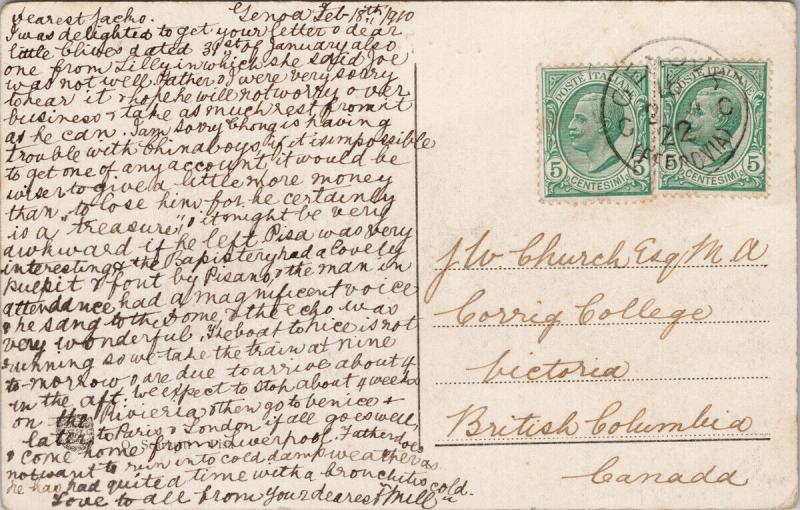 Genoa Feb 18th 1910
Dearest Jacko.
I was delighted to get your letter & dear
little Clives dated 31st of January also
one from Lilly in which she said Joe
was not well, Father & I were very sorry
to hear it & hope he will not worry over
business & take as much rest from it
as he can. I am sorry Chong is having
trouble with Chinaboys, if it is impossible
to get one of any account it would be
wiser to give a little more money
than to lose him for he certainly
is a "treasure", & it might be very
awkward if he left, Pisa was very
interesting & the Bapistery had a lovely
pulpit & font by Pisano, & the man in
attendance had a magnificent voice
& he sang to the Dome, & the echo was
very wonderful, The boat to nice is not
running so we take the train at nine
to-morrow & are due to arrive about 4
in the aft, we expect to stop about 4 weeks
on the Rivieria & then go to Venice &
later to Paris & London if all goes well,
& come home from Liverpool, Father does
not want to run into cold damp weather as
he has had quite a time with a bronchitis cold.
Love to all from your dearest Mill
POSTE ITALIANE
5 CENTESIMI 5
POSTE ITALIANE
5 CENTESIMI 5
GENOVA
(FERROVIA)
22
J. W. Church Esq M A
Corrig College
Victoria
British Columbia
Canada